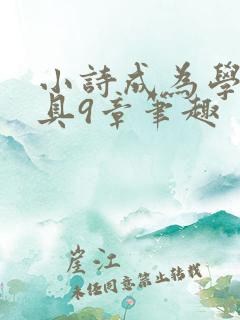 小詩成為學
具9章筆趣
崖江
未經同意禁止轉載